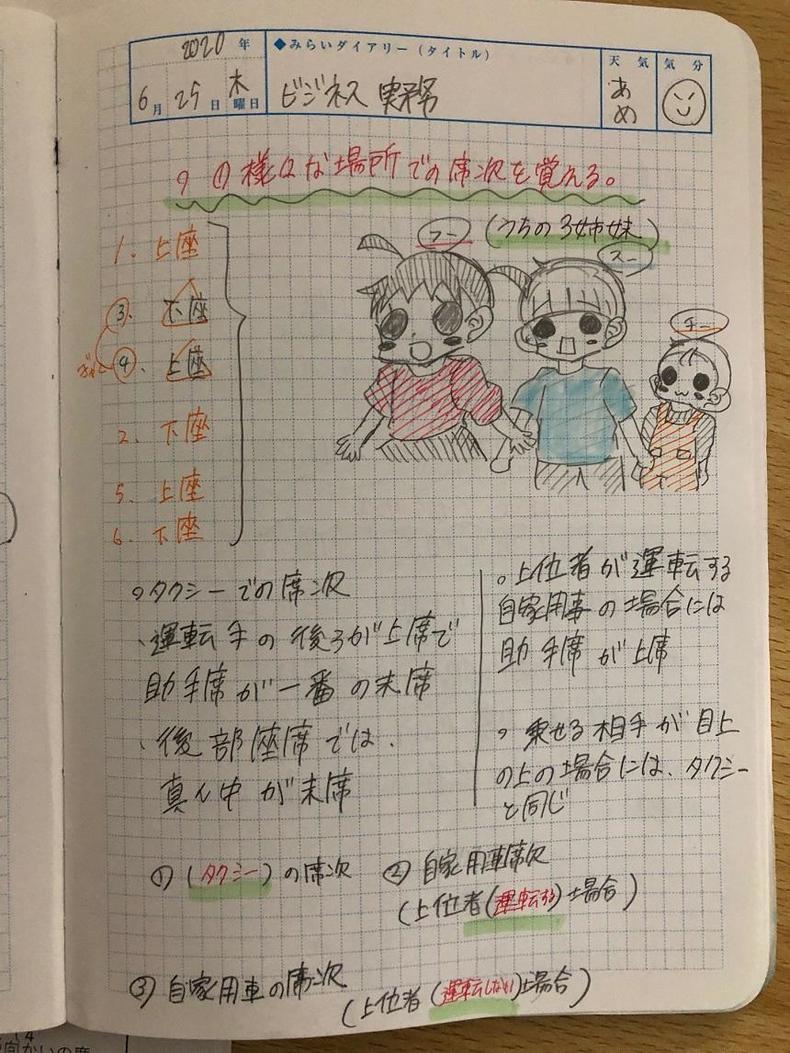 2020年
◆みらいダイアリー（タイトル）
天気
気分
6月25日木曜日
ビジネス実務
あめ
①様々な場所での席次を覚える。
(うちの3姉妹)
フー
スー
チー
1. 上座
③. 下座
④. 上座
2. 下座
5. 上座
6. 下座
。タクシーでの席次
、運転手の後ろが上席で
助手席が一番の末席
、後部座席では、
真ん中が末席
。上位者が運転する
自家用車の場合には
助手席が上席
。乗せる相手が目上
の上の場合には、タクシー
と同じ
①(タクシー)の席次
②自家用車席次
(上位者(運転する)場合)
③自家用車の席次
(上位者(運転しない)場合)